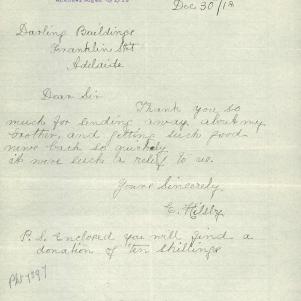 Dec 30/18
Darling Buildings
Franklin St
Adelaide
Dear Sir
Thank you so
much for sending away about my
brother, and getting such good
news back so quickly
it were such a relief to us.
Yours Sincerely
E.
P.S. Enclosed you will find a
donation of ten shillings